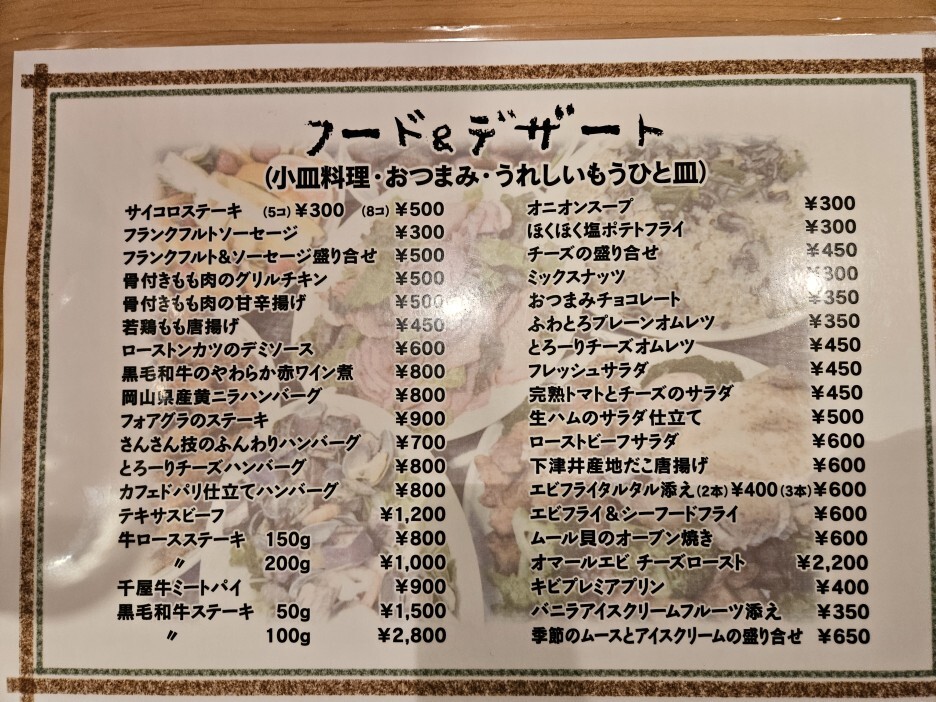 フード&デザート
(小皿料理・おつまみ・うれしいもうひと皿)
サイコロステーキ (5コ)¥300 (8コ)¥500
フランクフルトソーセージ ¥300
フランクフルト&ソーセージ盛り合せ ¥500
骨付きもも肉のグリルチキン ¥500
骨付きもも肉の甘辛揚げ ¥500
若鶏もも唐揚げ ¥450
ローストンカツのデミソース ¥600
黒毛和牛のやわらか赤ワイン煮 ¥800
岡山県産黄ニラハンバーグ ¥800
フォアグラのステーキ ¥900
さんさん技のふんわりハンバーグ ¥700
とろーりチーズハンバーグ ¥800
カフェドパリ仕立てハンバーグ ¥800
テキサスビーフ ¥1,200
牛ロースステーキ 150g ¥800
〃 200g ¥1,000
千屋牛ミートパイ ¥900
黒毛和牛ステーキ 50g ¥1,500
〃 100g ¥2,800
オニオンスープ ¥300
ほくほく塩ポテトフライ ¥300
チーズの盛り合せ ¥450
ミックスナッツ ¥300
おつまみチョコレート ¥350
ふわとろプレーンオムレツ ¥350
とろーりチーズオムレツ ¥450
フレッシュサラダ ¥450
完熟トマトとチーズのサラダ ¥450
生ハムのサラダ仕立て ¥500
ローストビーフサラダ ¥600
下津井産地だこ唐揚げ ¥600
エビフライタルタル添え(2本)¥400(3本)¥600
エビフライ&シーフードフライ ¥600
ムール貝のオーブン焼き ¥600
オマールエビ チーズロースト ¥2,200
キビプレミアプリン ¥400
バニラアイスクリームフルーツ添え ¥350
季節のムースとアイスクリームの盛り合せ ¥650